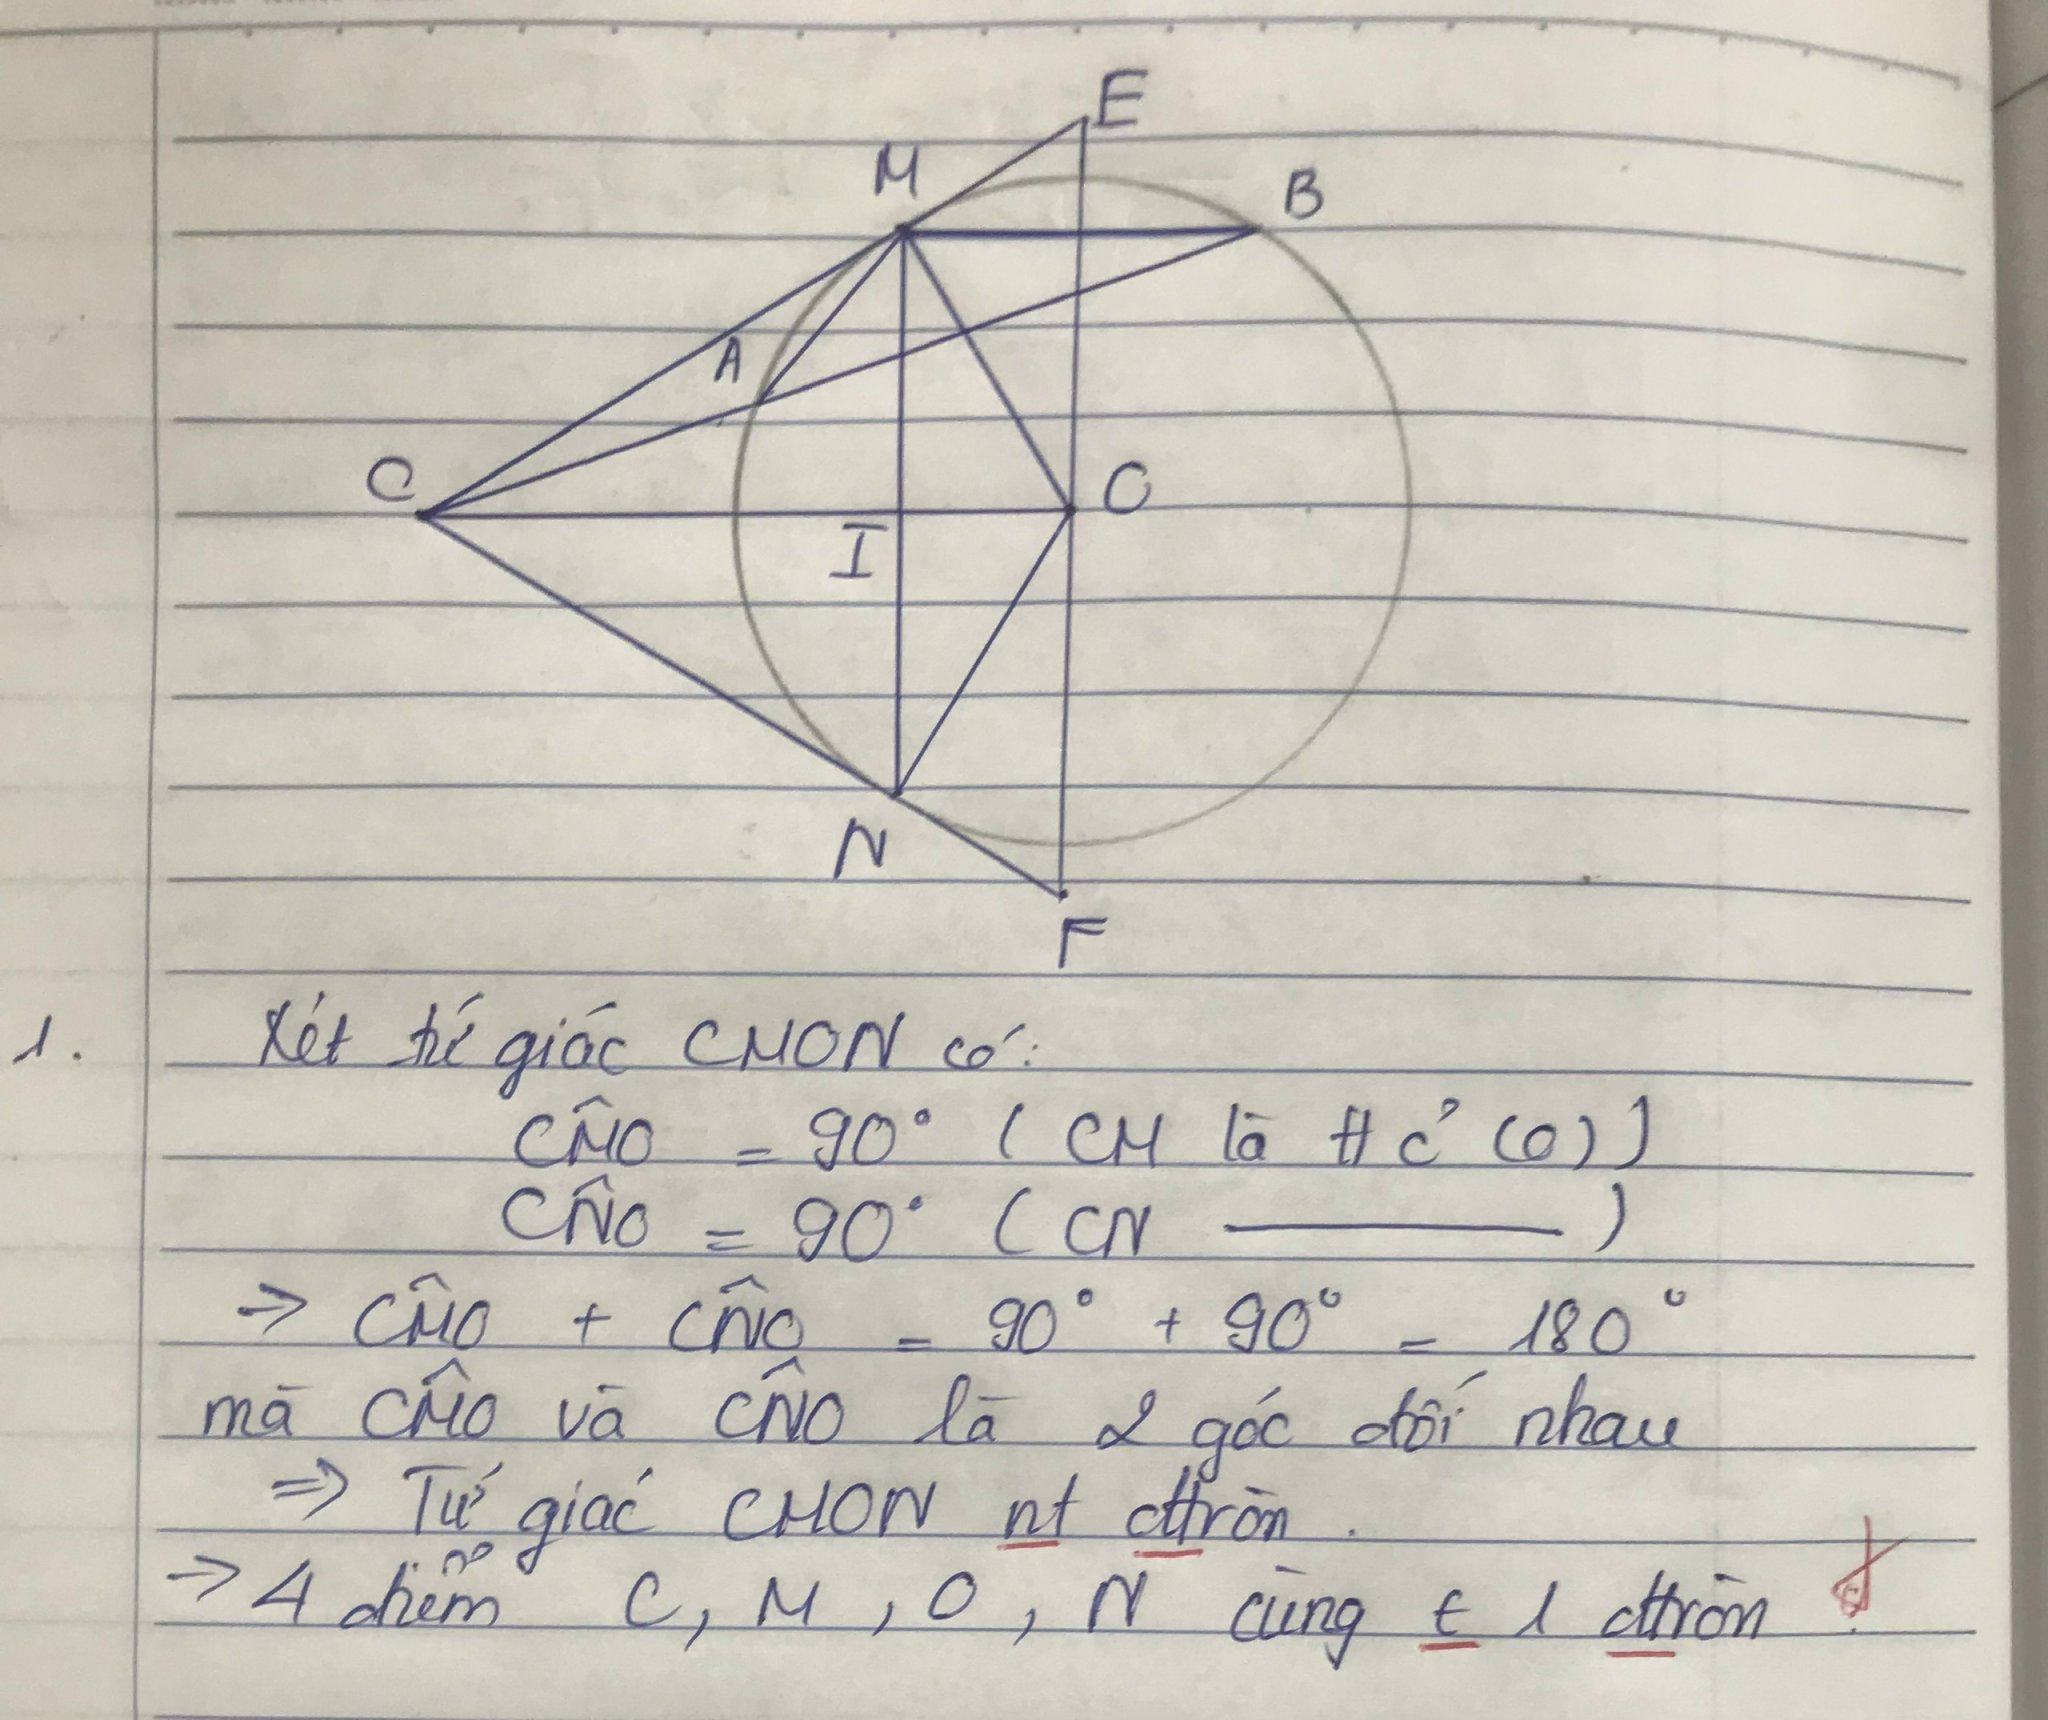 E
M
B
A
C
O
I
N
F
1. Xét tứ giác CMON có:
CM̂O = 90° ( CM là tt c̉ (O) )
CN̂O = 90° ( CN ——— )
=> CM̂O + CN̂O = 90° + 90° = 180°
mà CM̂O và CN̂O là 2 góc đối nhau
=> Tứ giác CMON nt đtròn .
=> 4 điểm C, M , O , N cùng t 1 đtròn .